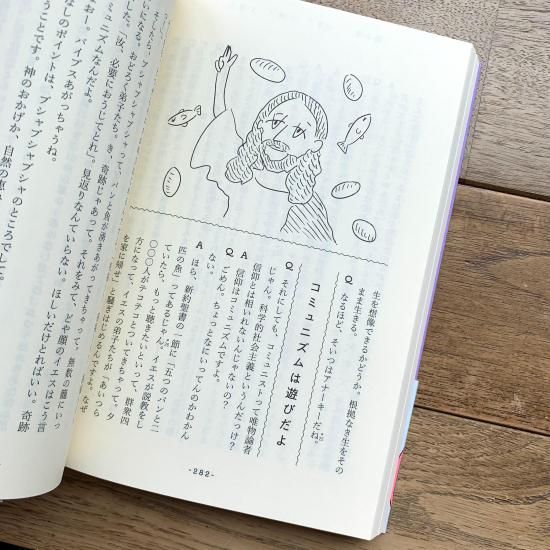 生を想像できるかどうか。根拠なき生をその
まま生きる。
Q なるほど、そいつはアナーキーだね。
コミュニズムは遊びだよ
Q それにしても、コミュニストって唯物論者
じゃん。科学的社会主義というんだっけ？
信仰とは相いれないんじゃないの？
A 信仰はコミュニズムですよ。
Q ごめん。ちょっとなにいってんのかわかん
ない。
A ほら、新約聖書の一節に「五つのパンと二
匹の魚」ってあるじゃん。イエスが説教をし
ていたら、もっと聴きたいといって、群衆四
〇〇〇人がテコテコとついてきちゃって。夕
方になって、イエスの弟子たちが「あいつら
を家に帰せ」と騒ぎはじめるんですよ。なぜ
そしたら、プシャプシャプシャって、パンと魚が湧きあがってきちゃって。無数の籠にいっ
いになる。おどろく弟子たち。き、奇跡じゃあって。それをみて、どや顔のイエスはこう言
した。「汝、必要におうじてとれ」。見返りなんていらない。ほしいだけとればいい。奇跡
ミュニズムなんだよ。
おー。バイブスあがっちゃうね。
なしのポイントは、プシャプシャプシャのところでして。
うことです。神のおかげか、自然の恵み
-282-